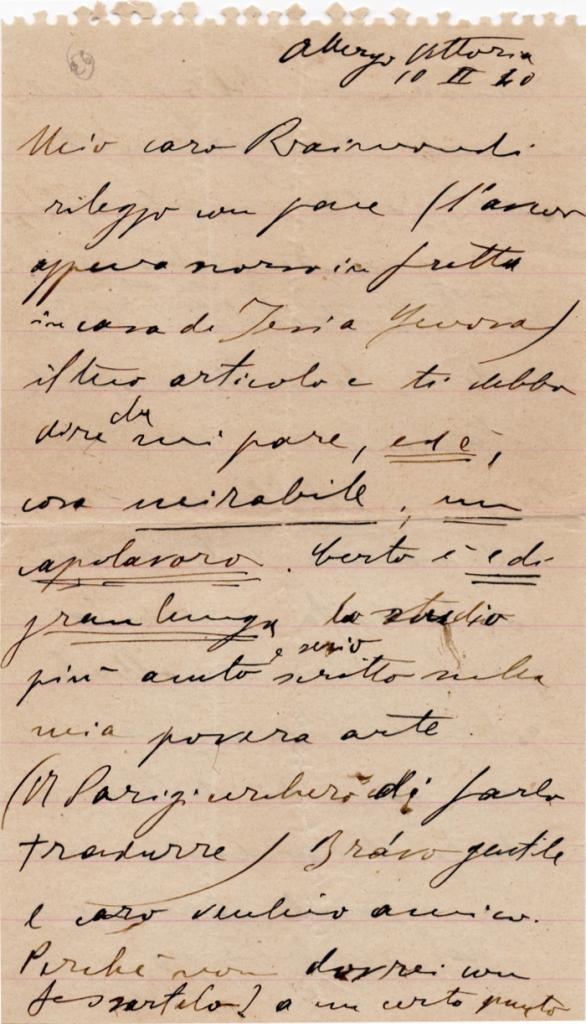 Albergo Vittoria
10 II 20
Mio caro Raimondi
rileggo con pace (l'avevo
appena scorso in fretta
in casa de
il tuo articolo e ti debbo
dire che mi pare, ed è,
cosa mirabile, un
capolavoro. Certo è e di
gran lunga lo studio
più acuto e serio scritto sulla
mia povera arte.
(A Parigi cercherò di farlo
tradurre) Bravo gentile
e caro vecchio amico.
Perché non dovrei con
fessartelo? a un certo punto